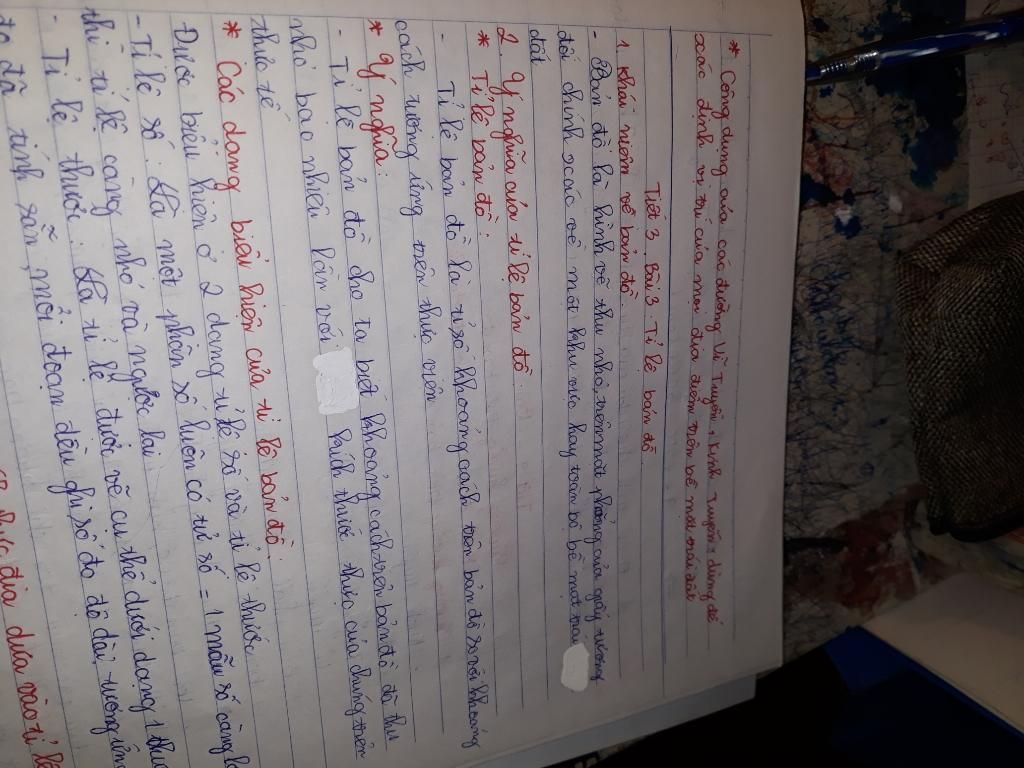 * Công dụng của các đường Vĩ Tuyến, Kinh Tuyến: dùng để
xác định vị trí của mọi địa điểm trên bề mặt trái đất
Tiết 3. Bài 3. Tỉ lệ bản đồ
1. Khái niệm về bản đồ
- Bản đồ là hình vẽ thu nhỏ trên mặt phẳng của giấy tương
đối chính xác về một khu vực hay toàn bộ bề mặt trái
đất
2. Ý nghĩa của tỉ lệ bản đồ.
* Tỉ lệ bản đồ:
- Tỉ lệ bản đồ là tỉ số khoảng cách trên bản đồ so với khoảng
cách tương ứng trên thực
* Ý nghĩa:
- Tỉ lệ bản đồ cho ta biết khoảng cách trên bản đồ đã thu
nhỏ bao nhiêu lần với kích thước thực của chúng trên
thực tế
* Các dạng biểu hiện của tỉ lệ bản đồ.
Được biểu hiện ở 2 dạng tỉ lệ số và tỉ lệ thước
- Tỉ lệ số: Là một phân số luôn có tử số = 1 mẫu số càng
thì tỉ lệ càng nhỏ và ngược lại
- Tỉ lệ thước: Là tỉ lệ được vẽ cụ thể dưới dạng 1
đo đã tính sẵn, mỗi đoạn đều ghi số đo độ dài tương ứng
địa dựa vào tỉ lệ